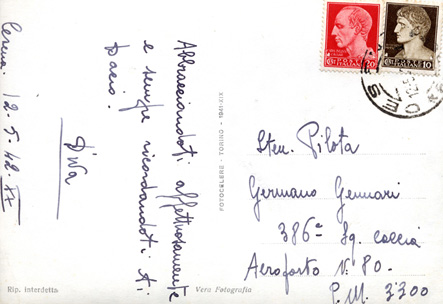 Cesena, 12-5-42 XX
Abbracciandoti affettuosamente
e sempre ricordandoti ti
bacio.
Diva
Rip. interdetta
Vera Fotografia
FOTOCELERE - TORINO - 1941-XIX
POSTE ITALIANE
20
POSTE ITALIANE
10
Sten. Pilota
Germano Gennari
386ª Sq. caccia
Aeroporto N. 80.
P. M. 3300